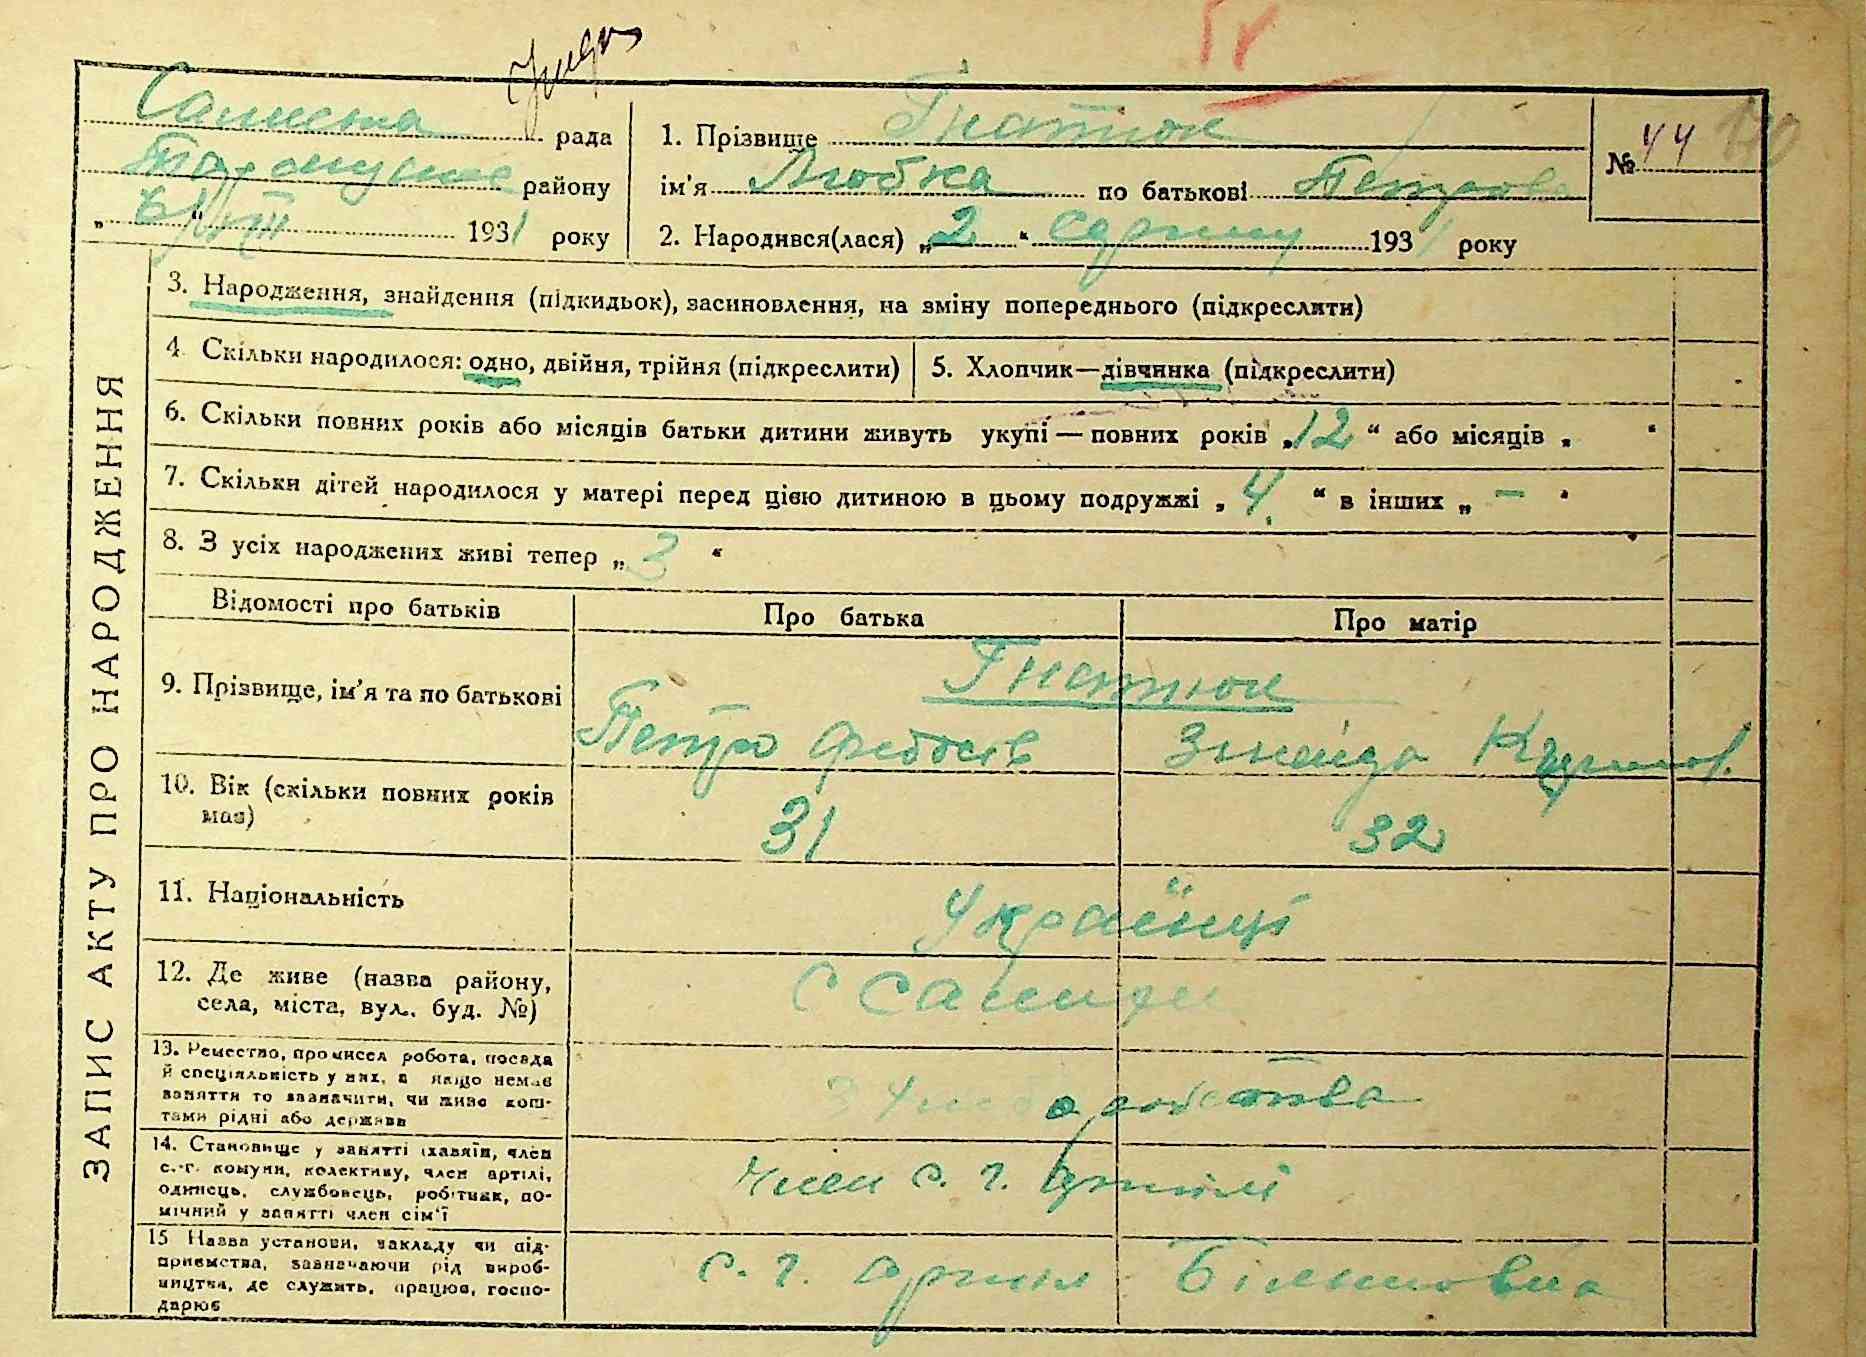 рада
району
1931 року
1. Прізвище Гнатюк
ім'я Любка по батькові Петрова
2. Народився(лася) „2“ серпня 1931 року
№ 44
170
ЗАПИС АКТУ ПРО НАРОДЖЕННЯ
3. Народження, знайдення (підкидьок), засиновлення, на зміну попереднього (підкреслити)
4. Скільки народилося: одно, двійня, трійня (підкреслити)
5. Хлопчик—дівчинка (підкреслити)
6. Скільки повних років або місяців батьки дитини живуть укупі — повних років „12“ або місяців „ “
7. Скільки дітей народилося у матері перед цією дитиною в цьому подружжі „4“ в інших „–“
8. З усіх народжених живі тепер „3“
Відомості про батьків Про батька Про матір
9. Прізвище, ім'я та по батькові
Гнатюк
Петро
10. Вік (скільки повних років
має)
31 32
11. Національність
Українці
12. Де живе (назва району,
села, міста, вул., буд. №)
с
13. Ремество, промисел робота, посада
й спеціяльність у них, а якщо немає
заняття то зазначити, чи живе кош-
тами рідні або держави
14. Становище у занятті (хазяїн, член
с.-г. комуни, колективу, член артілі,
одинець, службовець, робітник, по-
мічний у занятті член сім'ї
член с. г. артілі
15 Назва установи, закладу чи під-
приємства, зазначаючи рід вироб-
ництва, де служить, працює, госпо-
дарює
с. г. артіль